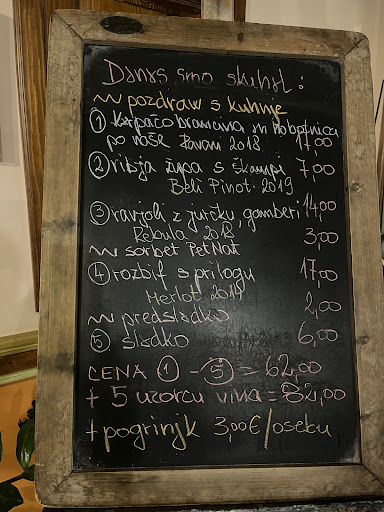 Danes smo skuhal:
~ pozdrav s kuhnje
① Karpačo brancina in hobotnica
po naše Pavan 2018 17,00
② ribja župa s škampi 7,00
Beli Pinot 2019
③ ravjoli z jurčki, gamberi 14,00
Rebula 2018 3,00
~ sorbet PetNat
④ rozbif s prilogu 17,00
Merlot
~ predsladko 2,00
⑤ sladko 6,00
CENA ① - ⑤ = 62,00
+ 5 uzorcu vina = 82,00
+ pogrinjk 3,00€/osebu